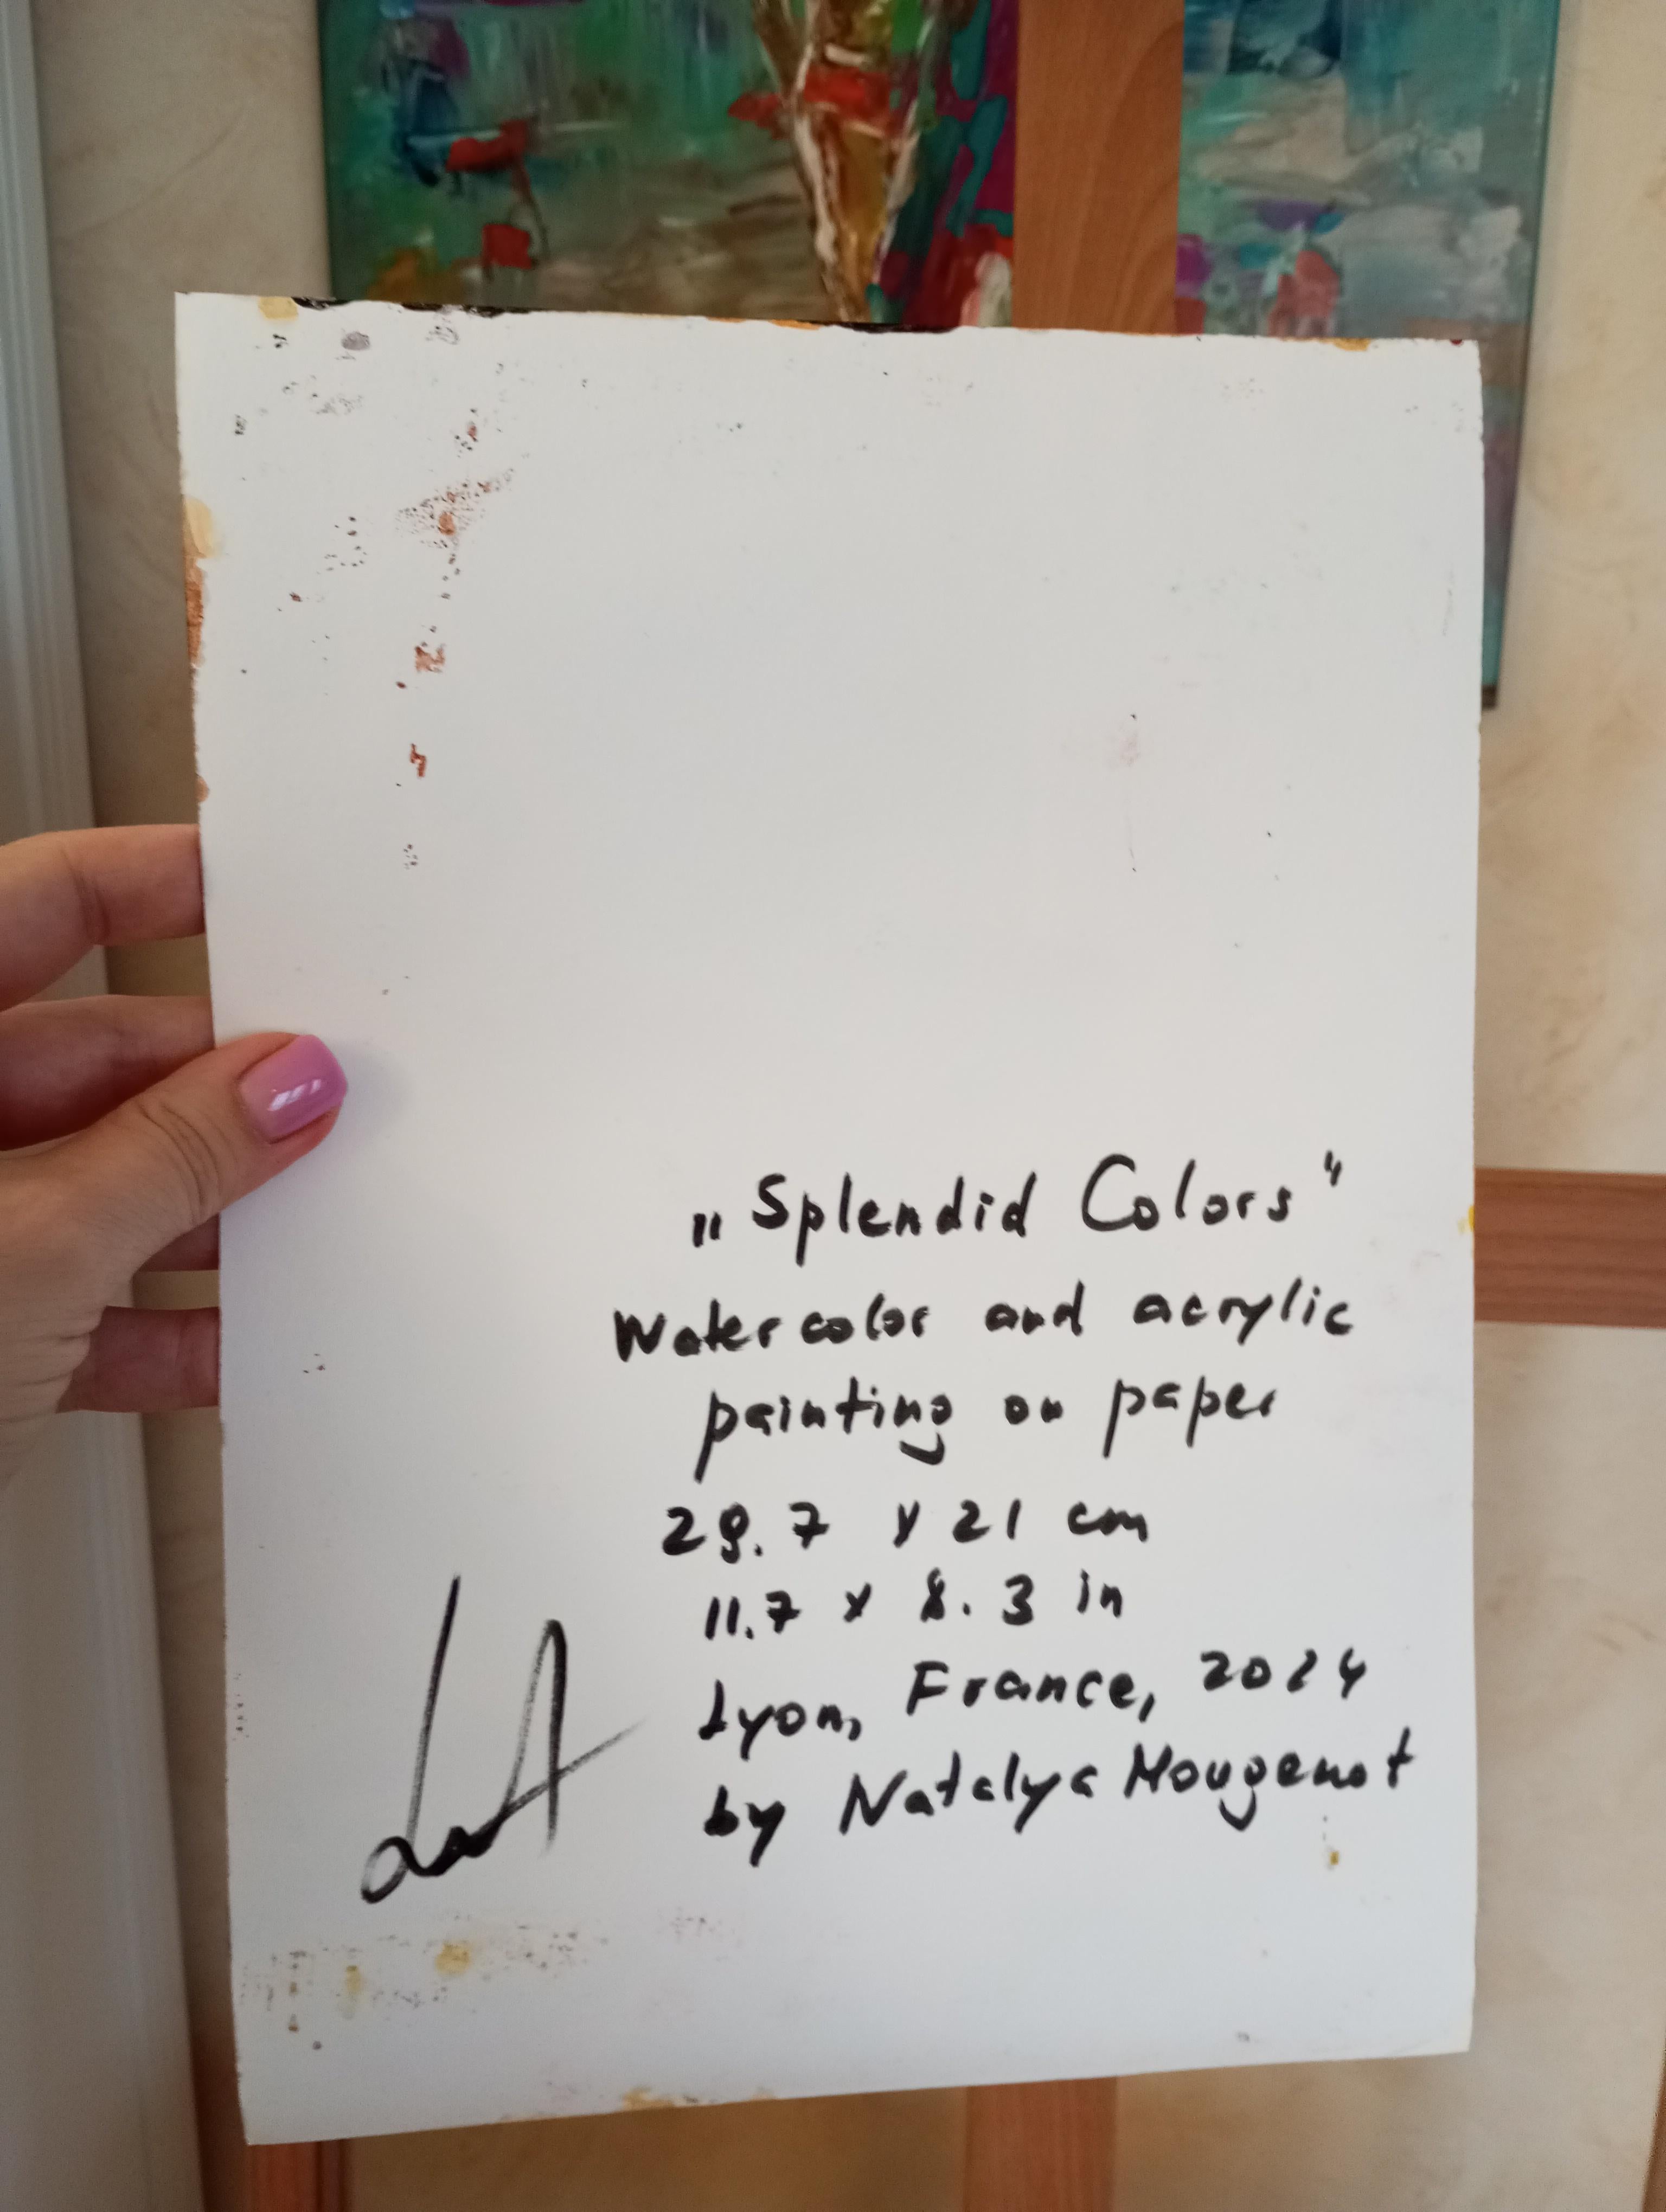 „Splendid Colors"
Watercolor and acrylic
painting on paper
29.7 x 21 cm
11.7 x 8.3 in
Lyon, France, 2024
by Natalya Mougenot